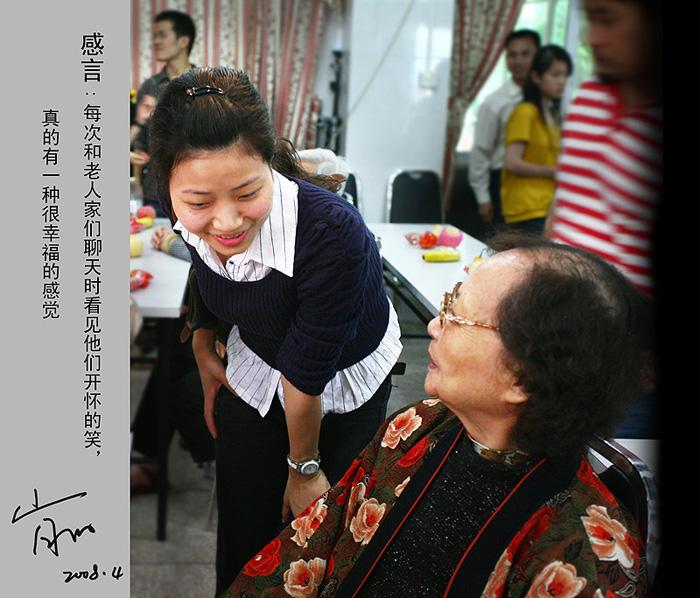 感言：每次和老人家们聊天时看见他们开怀的笑，
真的有一种很幸福的感觉
2008.4